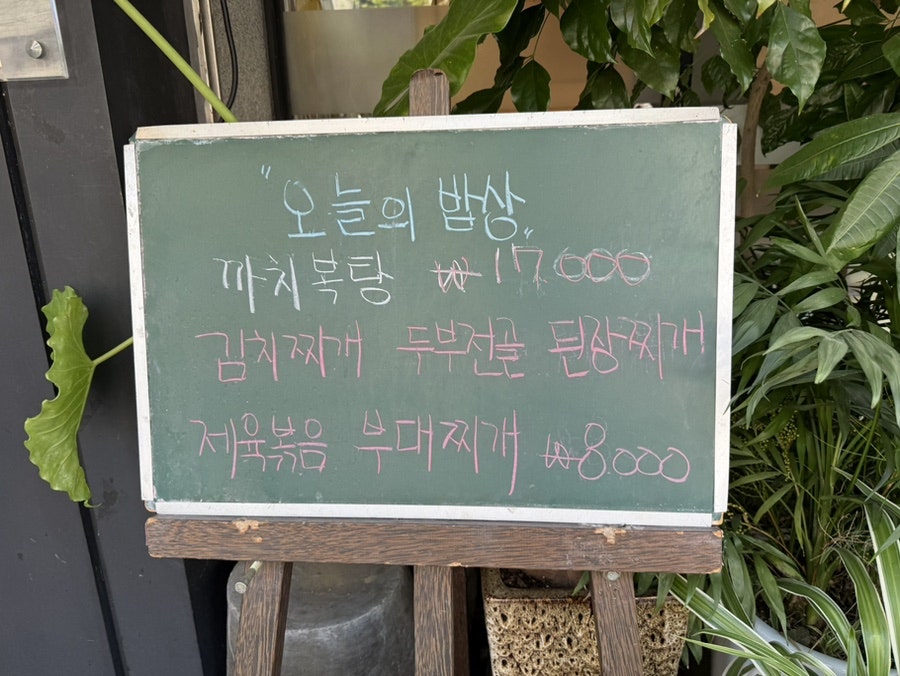 "오늘의 밥상"
까치복탕 ₩17.000
김치찌개 두부전골 된장찌개
제육볶음 부대찌개 ₩8.000